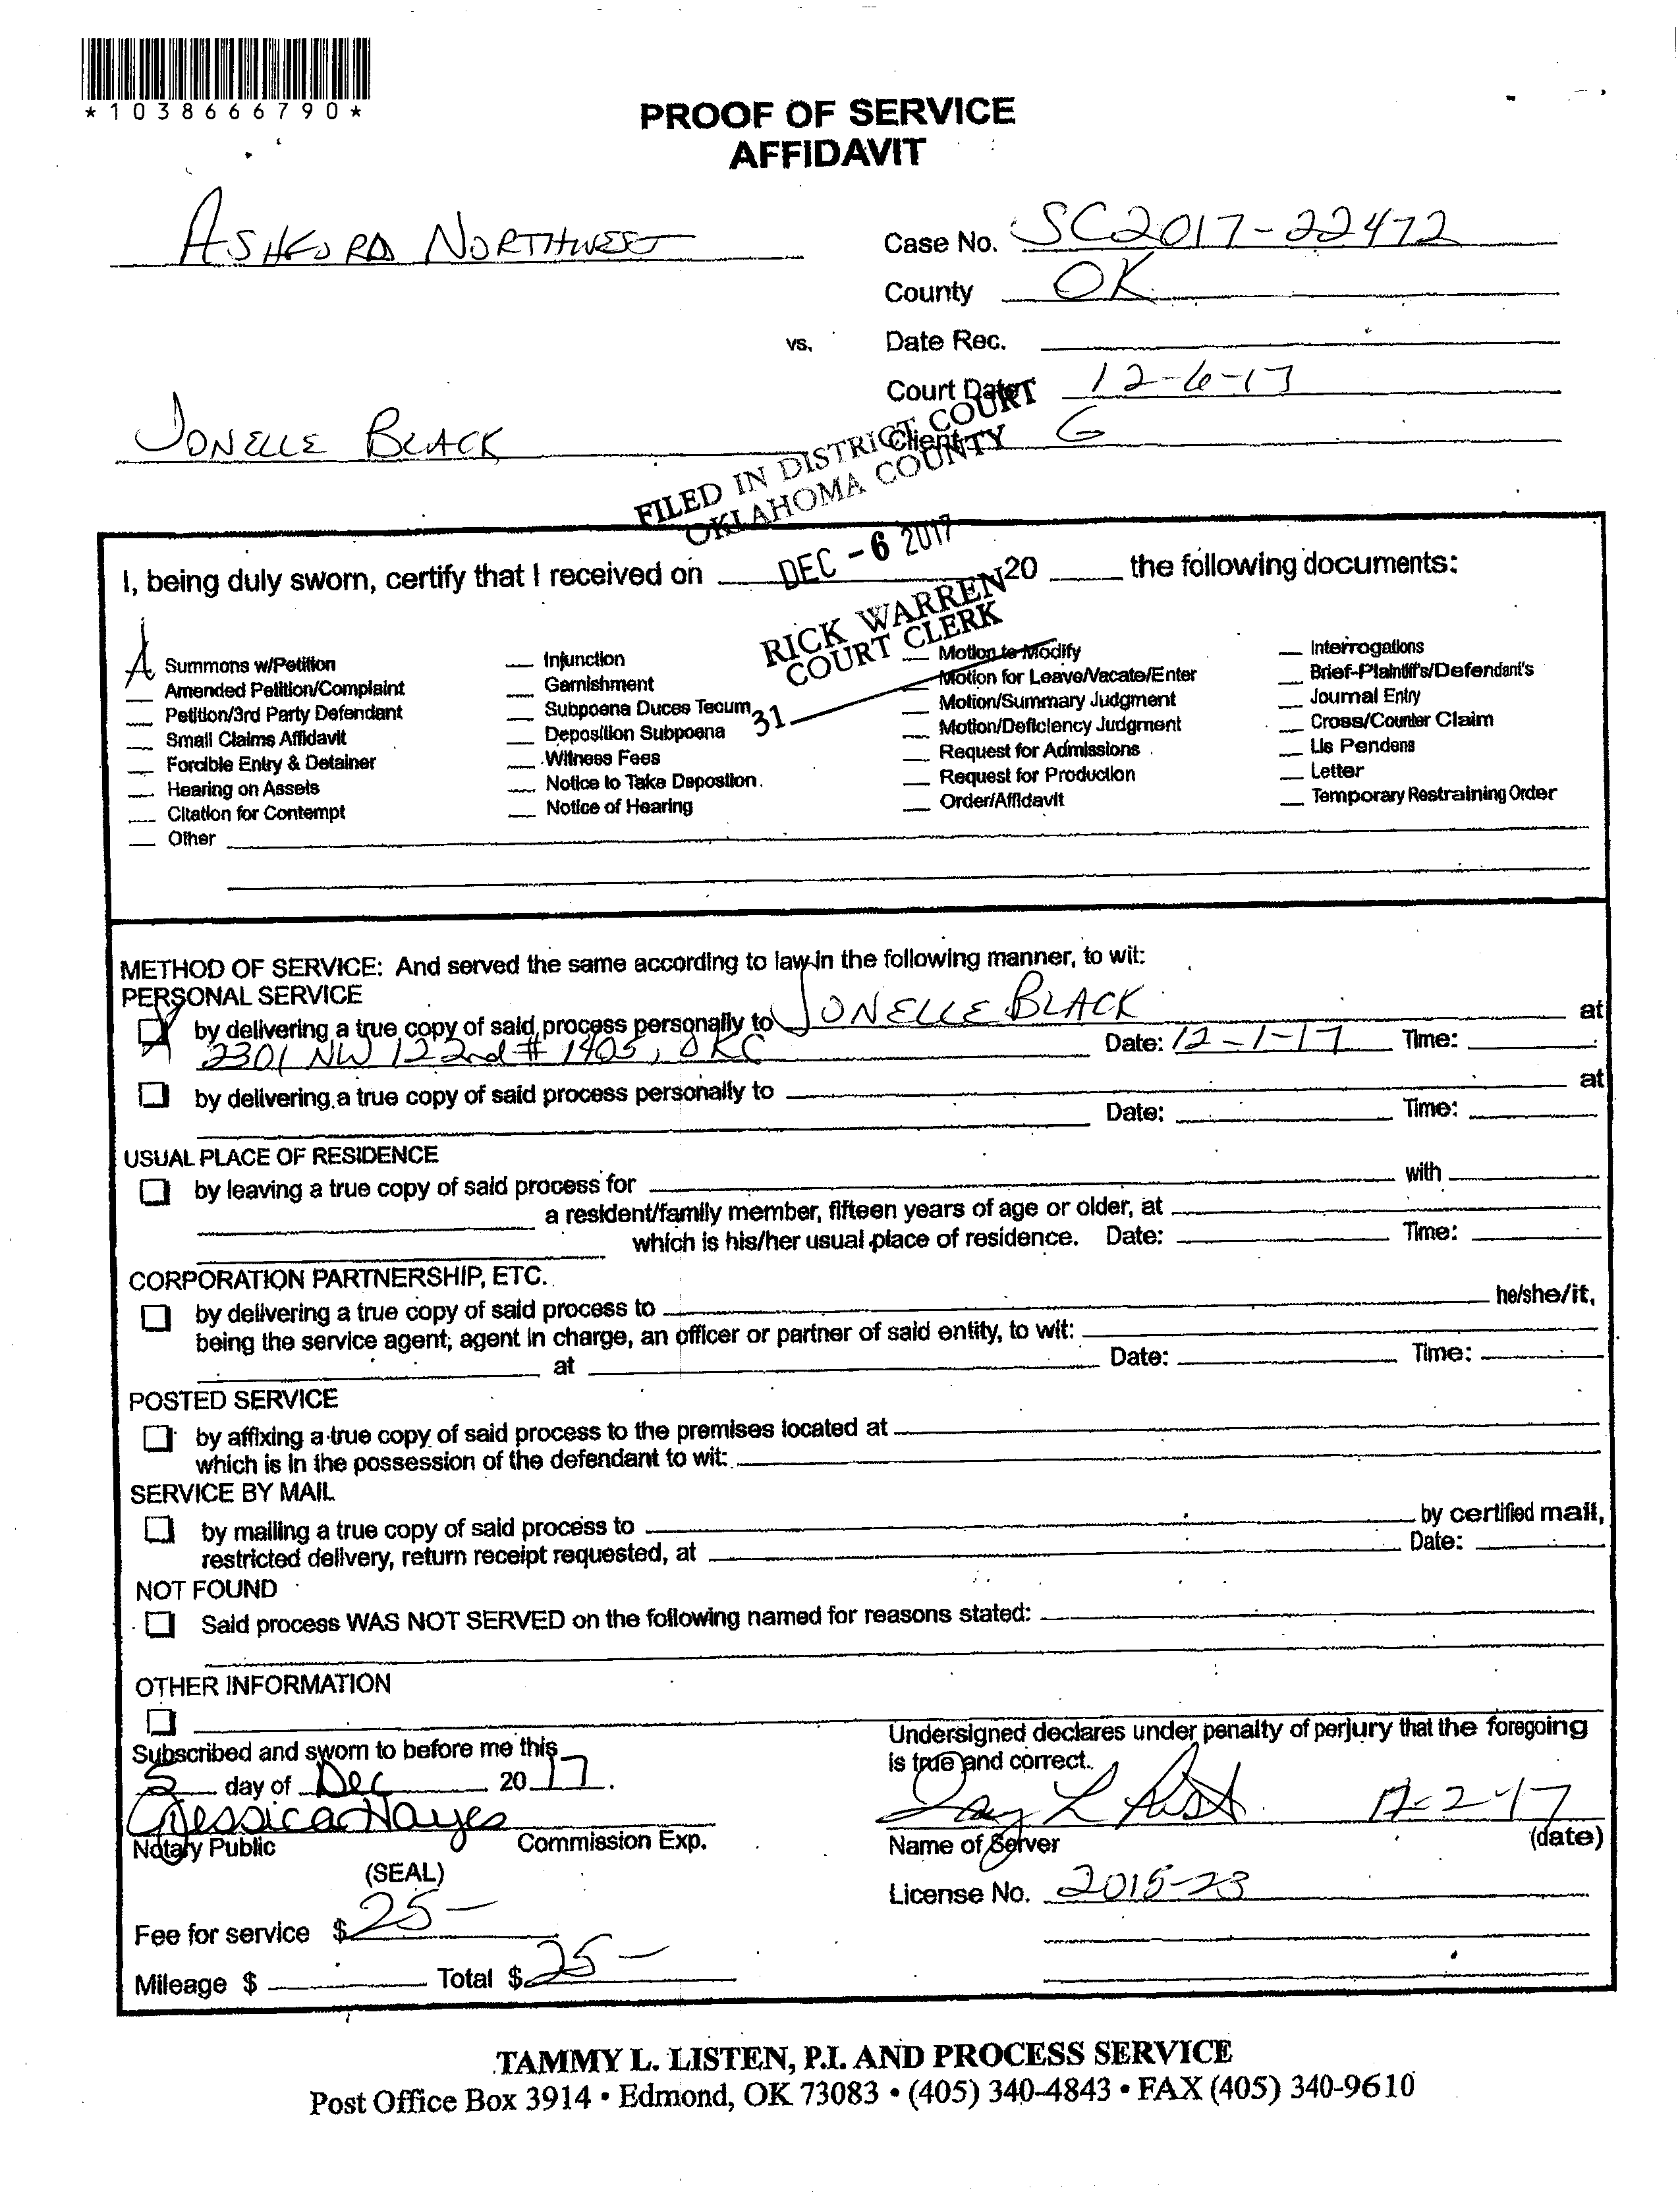 *1038666790*
PROOF OF SERVICE
AFFIDAVIT
ASHFORD NORTHWEST
Case No. SC2017-22472
County OK
vs.
Date Rec.
Court Date: 12-6-17
JONELLE BLACK
Client G
FILED IN DISTRICT COURT
OKLAHOMA COUNTY
DEC -6 2017
RICK WARREN
COURT CLERK
31
I, being duly sworn, certify that I received on 20 the following documents:
Summons w/Petition
Amended Petition/Complaint
Petition/3rd Party Defendant
Small Claims Affidavit
Forcible Entry & Detainer
Hearing on Assets
Citation for Contempt
Other
Injunction
Garnishment
Subpoena Duces Tecum
Deposition Subpoena
Witness Fees
Notice to Take Depostion.
Notice of Hearing
Motion to Modify
Motion for Leave/Vacate/Enter
Motion/Summary Judgment
Motion/Deficiency Judgment
Request for Admissions
Request for Production
Order/Affidavit
Interrogations
Brief-Plaintiff's/Defendant's
Journal Entry
Cross/Counter Claim
Lis Pendens
Letter
Temporary Restraining Order
METHOD OF SERVICE: And served the same according to law in the following manner, to wit:
PERSONAL SERVICE
by delivering a true copy of said process personally to JONELLE BLACK at
2301 NW 122nd # 1405, OKC Date: 12-1-17 Time:
by delivering a true copy of said process personally to at
Date: Time:
USUAL PLACE OF RESIDENCE
by leaving a true copy of said process for with
a resident/family member, fifteen years of age or older, at
which is his/her usual place of residence. Date: Time:
CORPORATION PARTNERSHIP, ETC.
by delivering a true copy of said process to he/she/it,
being the service agent, agent in charge, an officer or partner of said entity, to wit:
at Date: Time:
POSTED SERVICE
by affixing a true copy of said process to the premises located at
which is in the possession of the defendant to wit:
SERVICE BY MAIL
by mailing a true copy of said process to by certified mail,
restricted delivery, return receipt requested, at Date:
NOT FOUND
Said process WAS NOT SERVED on the following named for reasons stated:
OTHER INFORMATION
Subscribed and sworn to before me this
5 day of Dec 2017.
Jessica Hayes
Notary Public Commission Exp.
(SEAL)
Fee for service $25-
Mileage $ Total $25-
Undersigned declares under penalty of perjury that the foregoing
is true and correct.
12-2-17
Name of Server (date)
License No. 2015-23
TAMMY L. LISTEN, P.I. AND PROCESS SERVICE
Post Office Box 3914 • Edmond, OK 73083 • (405) 340-4843 • FAX (405) 340-9610